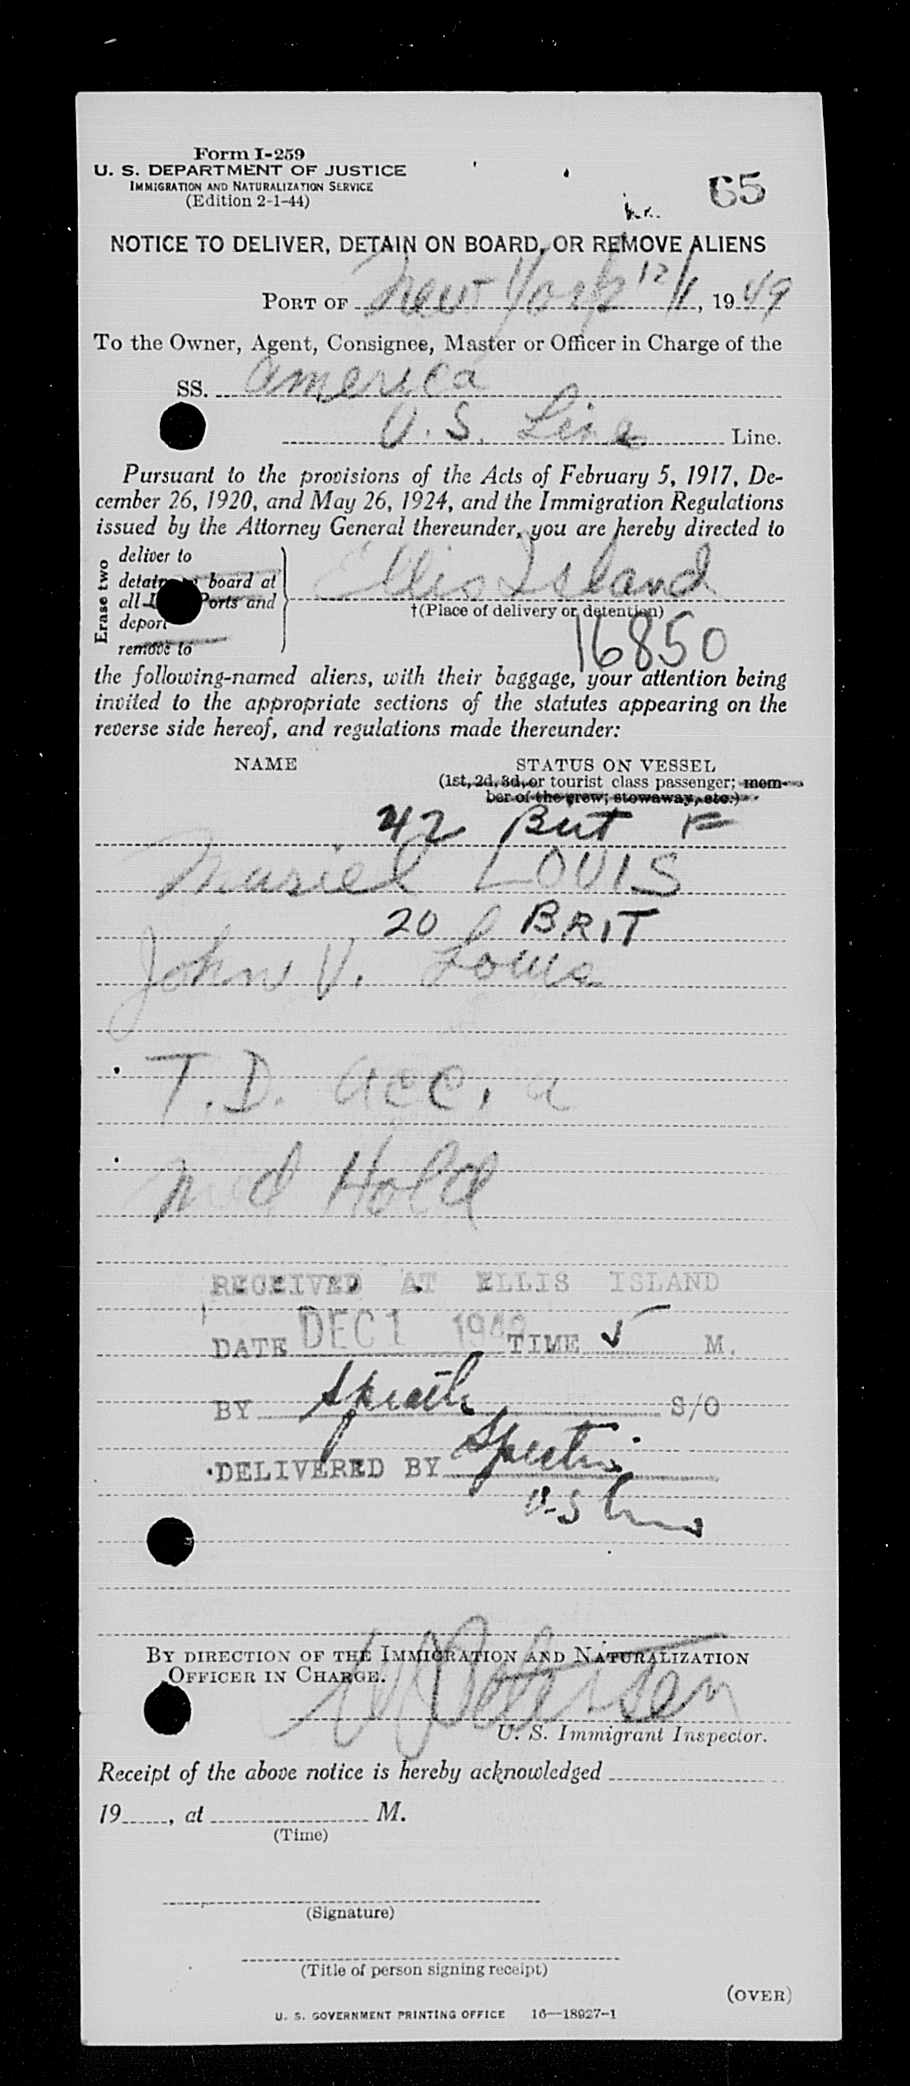 Form I-259
U. S. DEPARTMENT OF JUSTICE
IMMIGRATION AND NATURALIZATION SERVICE
(Edition 2-1-44)
65
NOTICE TO DELIVER, DETAIN ON BOARD, OR REMOVE ALIENS
PORT OF New York 12/1, 1949
To the Owner, Agent, Consignee, Master or Officer in Charge of the
SS. America
U.S. Line Line.
Pursuant to the provisions of the Acts of February 5, 1917, De-
cember 26, 1920, and May 26, 1924, and the Immigration Regulations
issued by the Attorney General thereunder, you are hereby directed to
Erase two
deliver to
detain board at
all Ports and
deport
remove to
Ellis Island
†(Place of delivery or detention)
16850
the following-named aliens, with their baggage, your attention being
invited to the appropriate sections of the statutes appearing on the
reverse side hereof, and regulations made thereunder:
NAME STATUS ON VESSEL
(1st, 2d, 3d, or tourist class passenger; mem-
ber of the crew; stowaway, etc.)
42 Brit F
Muriel LOUIS
20 BRIT
John V. Louis
T.D. acc, a
Med Hold
RECEIVED AT ELLIS ISLAND
DATE DEC 1 194 TIME 5 M.
BY S/O
DELIVERED BY
U.S Lines
BY DIRECTION OF THE IMMIGRATION AND NATURALIZATION
OFFICER IN CHARGE.
Petersen
U. S. Immigrant Inspector.
Receipt of the above notice is hereby acknowledged
19......, at M.
(Time)
(Signature)
(Title of person signing receipt)
(OVER)
U. S. GOVERNMENT PRINTING OFFICE 16—18927-1